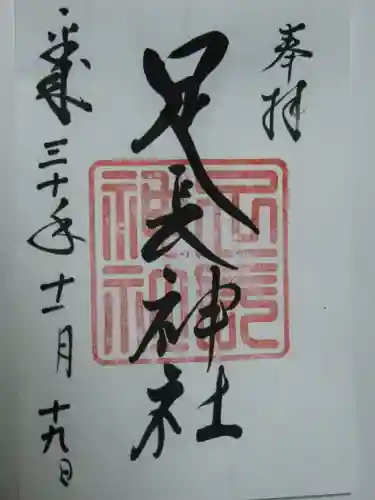 奉拝
足長神社
足長神社
平成三十年十一月十九日